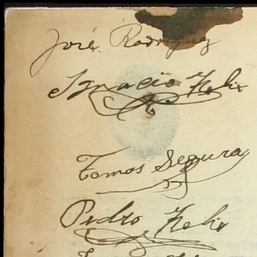 José Rodriguez
Ignacio Felix
Tomas Segura
Pedro Felix